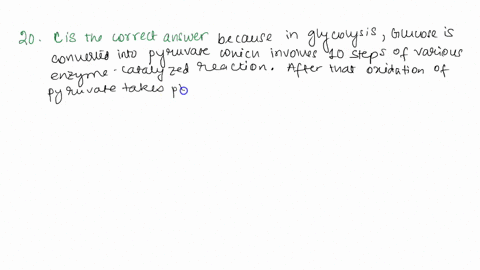 20. C is the correct answer because in glycolysis, Glucose is
converted into pyruvate which involves 10 steps of various
enzyme-catalyzed reaction. After that oxidation of
pyruvate takes pl